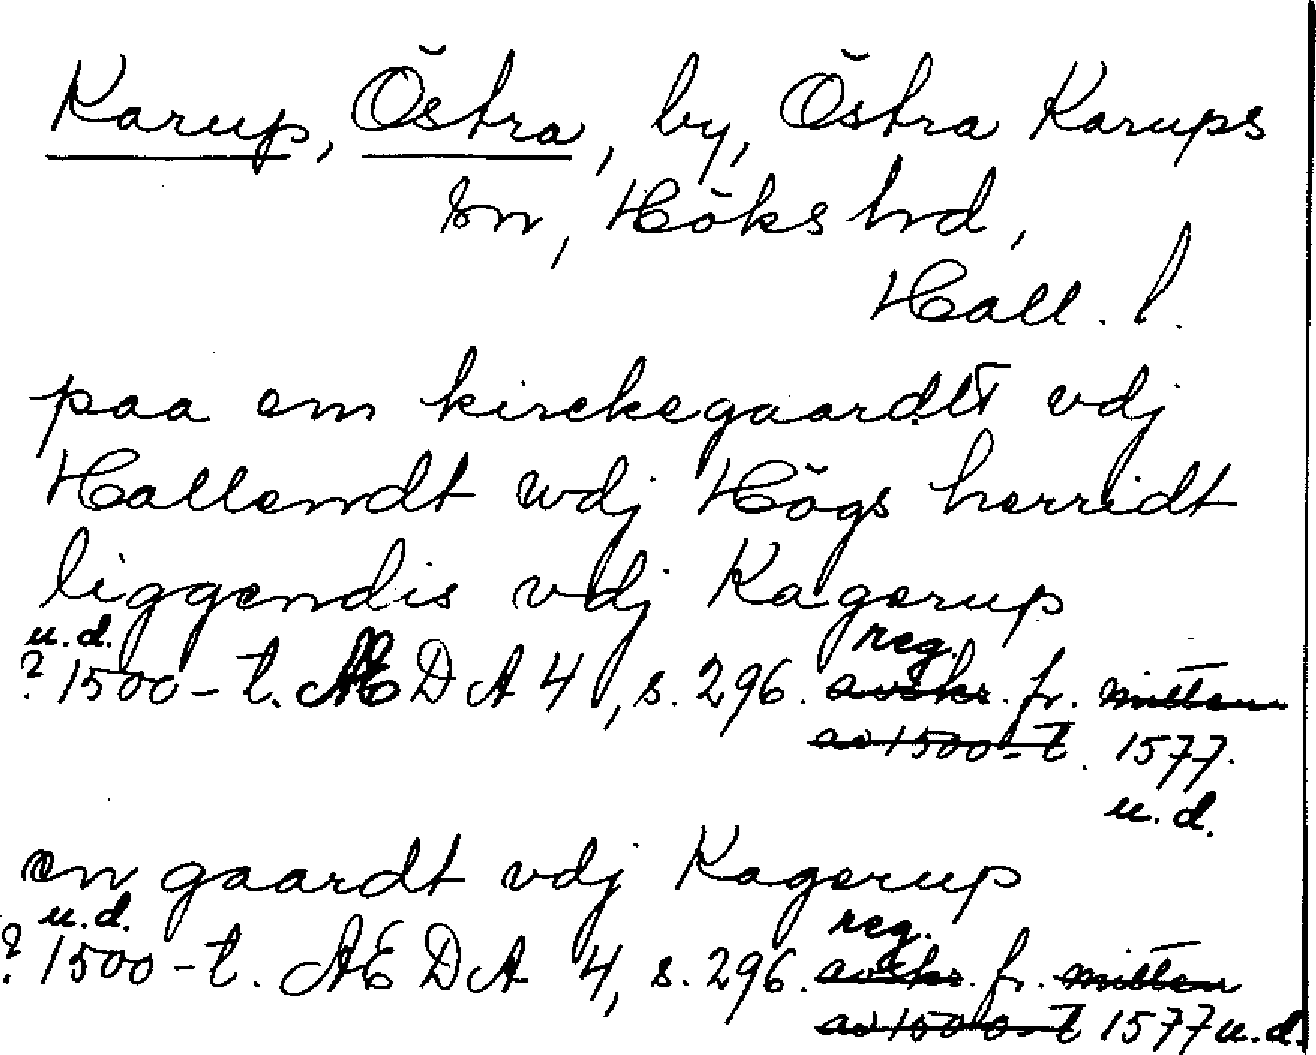 Karup, Östra, by, Östra Karups
sn, Höks hrd,
Hall. l.
paa em kirckegaardtt vdj
Hallendt vdj Högs herridt
liggendis vdj Kagerup
u.d.
reg.
? 1500-t. ÆDA 4, s. 296. avskr. fr. mitten
av 1500-t. 1577.
u.d.
en gaardt vdj Kagerup
u.d.
reg.
? 1500-t. ÆDA 4, s. 296. avskr. fr. mitten
av 1500-t 1577 u.d.